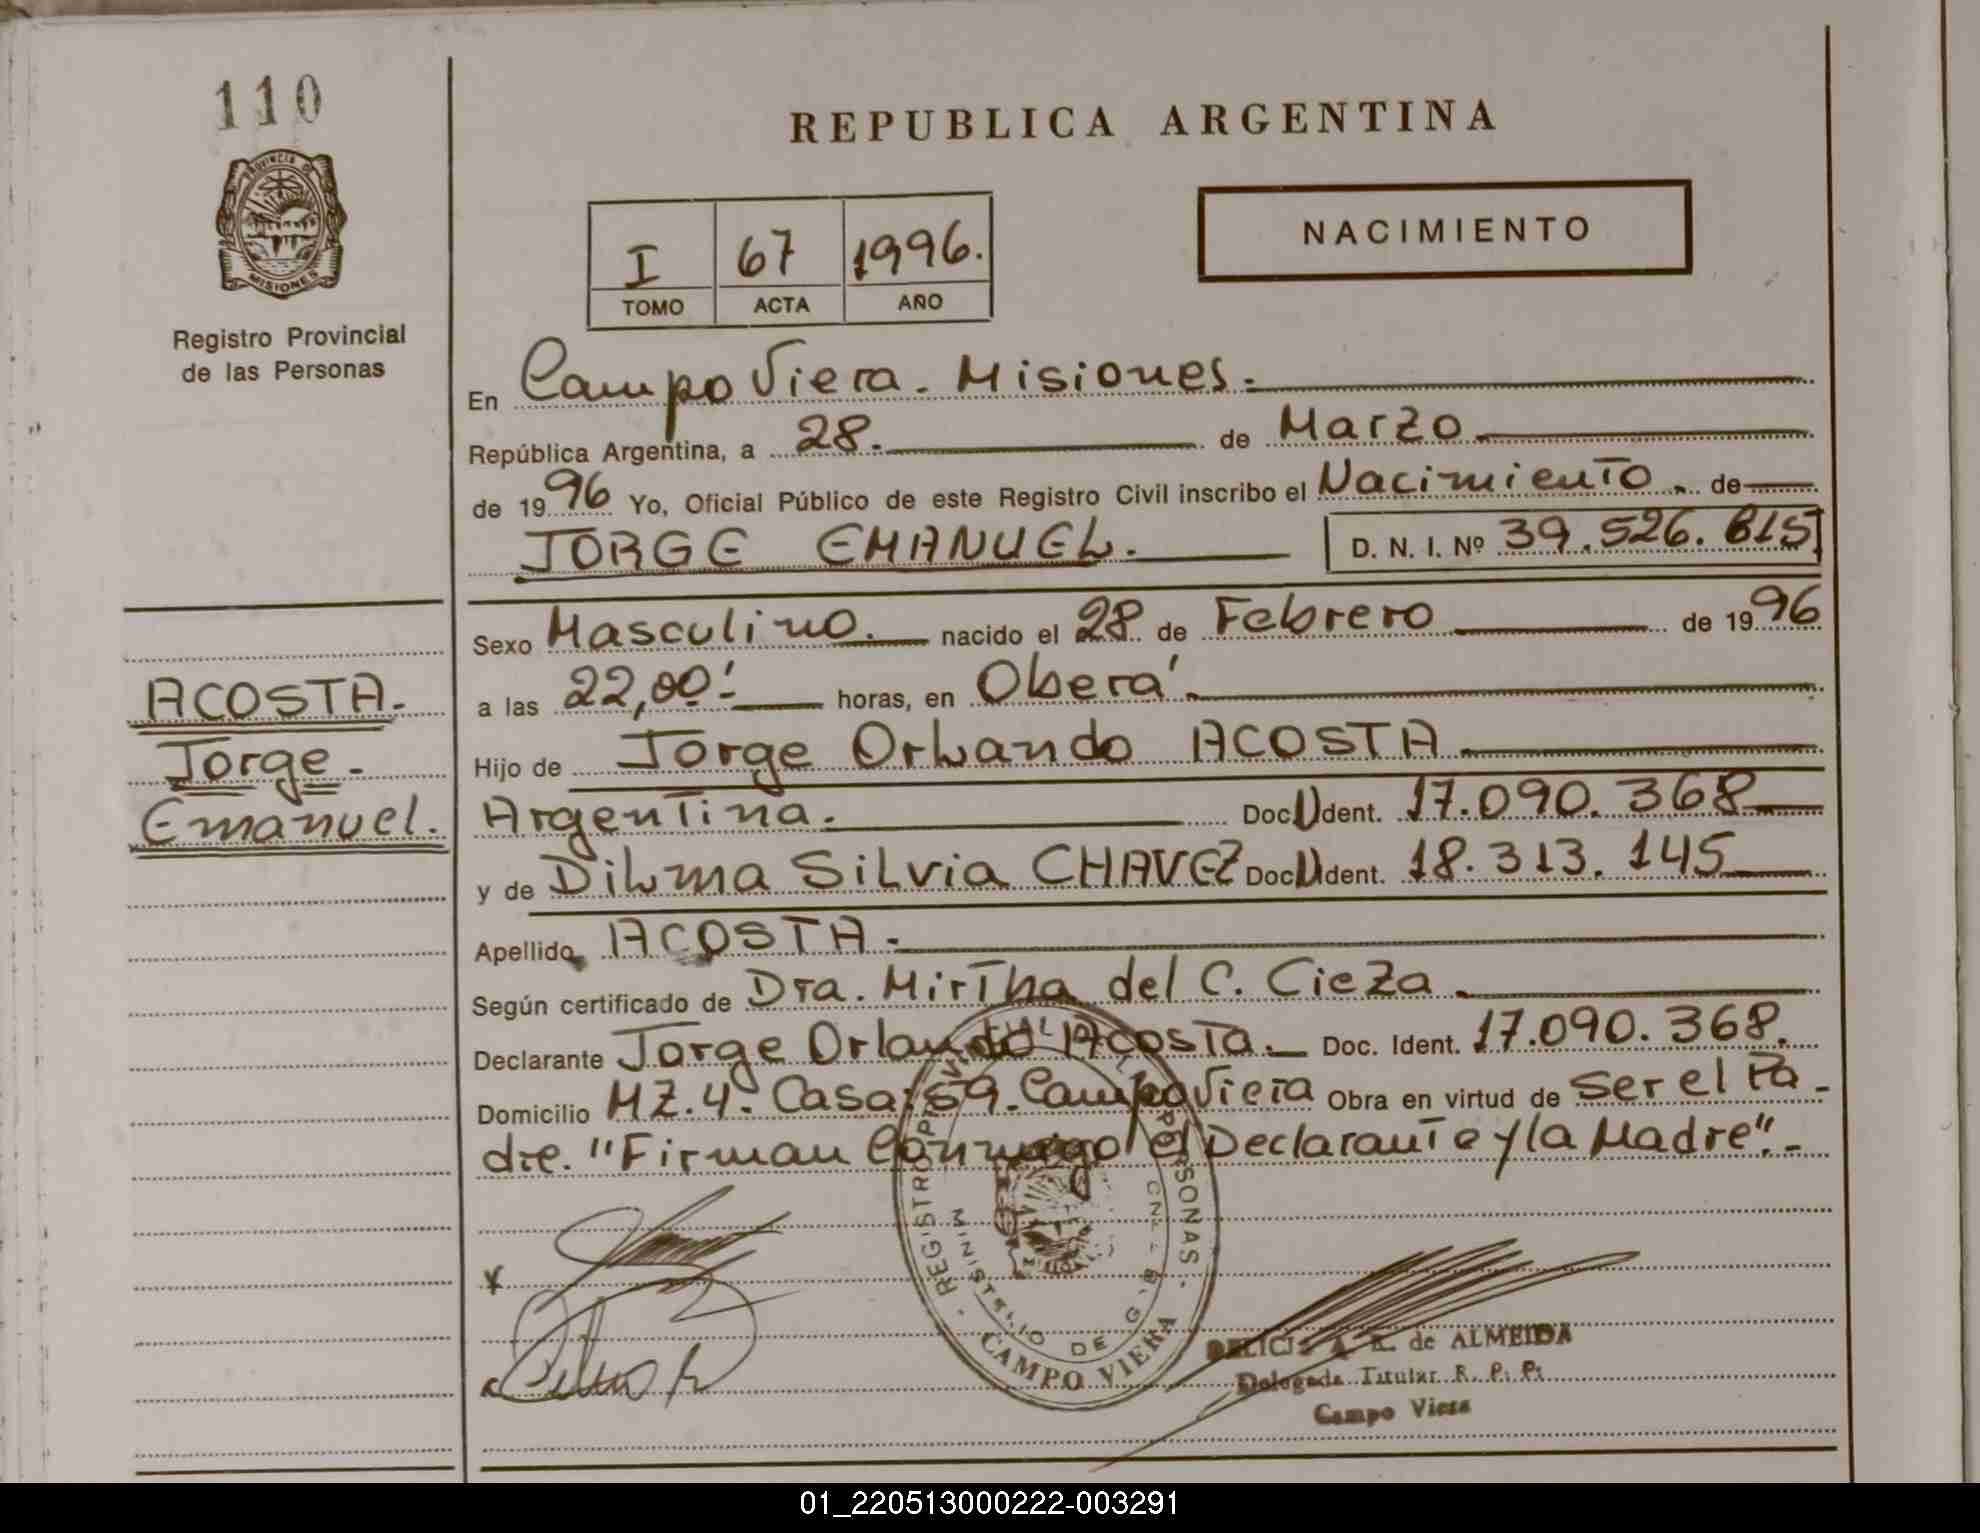 110
PROVINCIA DE
MISIONES
Registro Provincial
de las Personas
ACOSTA.
Jorge.
Emanuel.
REPUBLICA ARGENTINA
I 67 1996.
TOMO ACTA AÑO
NACIMIENTO
En Campo Viera. Misiones.
República Argentina, a 28. de Marzo
de 1996 Yo, Oficial Público de este Registro Civil inscribo el Nacimiento. de
JORGE EMANUEL. D. N. I. Nº 39.526.615
Sexo Masculino. nacido el 28 de Febrero de 1996
a las 22,00' horas, en Oberá.
Hijo de Jorge Orlando ACOSTA
Argentina. Doc. Ident. 17.090.368
y de Dilma Silvia CHAVEZ Doc. Ident. 18.313.145
Apellido ACOSTA.
Según certificado de Dra. Mirtha del C. Cieza.
Declarante Jorge Orlando Acosta. Doc. Ident. 17.090.368.
Domicilio MZ.4. Casa:59. Campo Viera Obra en virtud de ser el Pa-
dre. "Firman Conmigo el Declarante y la Madre".-
REGISTRO PERSONAS
MINISTERIO DE G.
CAMPO VIERA
de ALMEIDA
Delegada Titular R. P. P.
Campo Viera
01_220513000222-003291